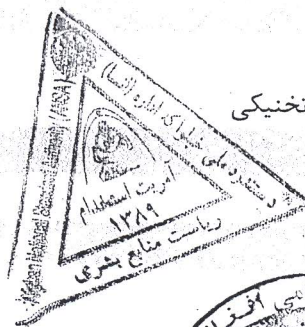 تخنیکی
Afghan National Standard Authority (ANSA)
د ستندرد ملی
اداره (انسا)
آمریت استخدام
۱۳۸۹
ریاست منابع بشری